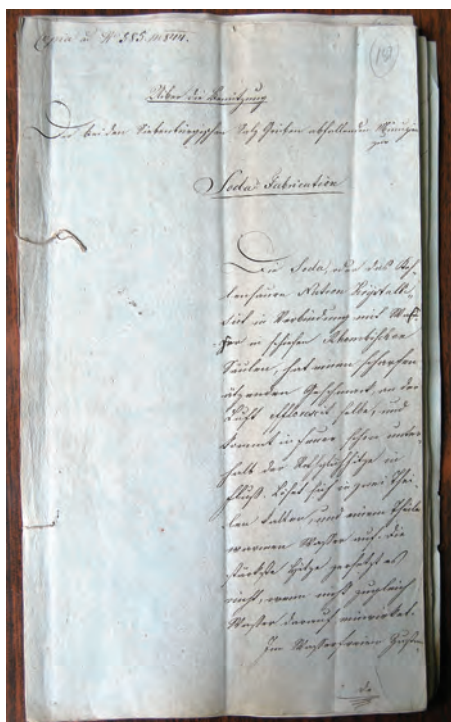 Copia ad No 585 m 844.
Ueber die Benützung
Der bei den Siebenbürgischen Salz Gruben abfallenden Minuzien
zur
Soda Fabrication
Die Soda, oder das Koh-
lensaure Natron Krystalli-
sirt in Verbindung mit Was-
ser in schiefen Rhombischen
Säulen, hat einen scharfen
ätzenden Geschmack, an der
Luft efflorescirt selbe, und
kommt in Feuer schon unter-
halb der Rothglühhitze in
Fluß. Löset sich in zwei Thei-
len kalten, und einem Theile
warmen Wasser auf. Die
stärkste Hitze zersetzt es
nicht, wenn nicht zugleich
Wasser darauf einwirket.
Im Wasserfreien Zustan-
de